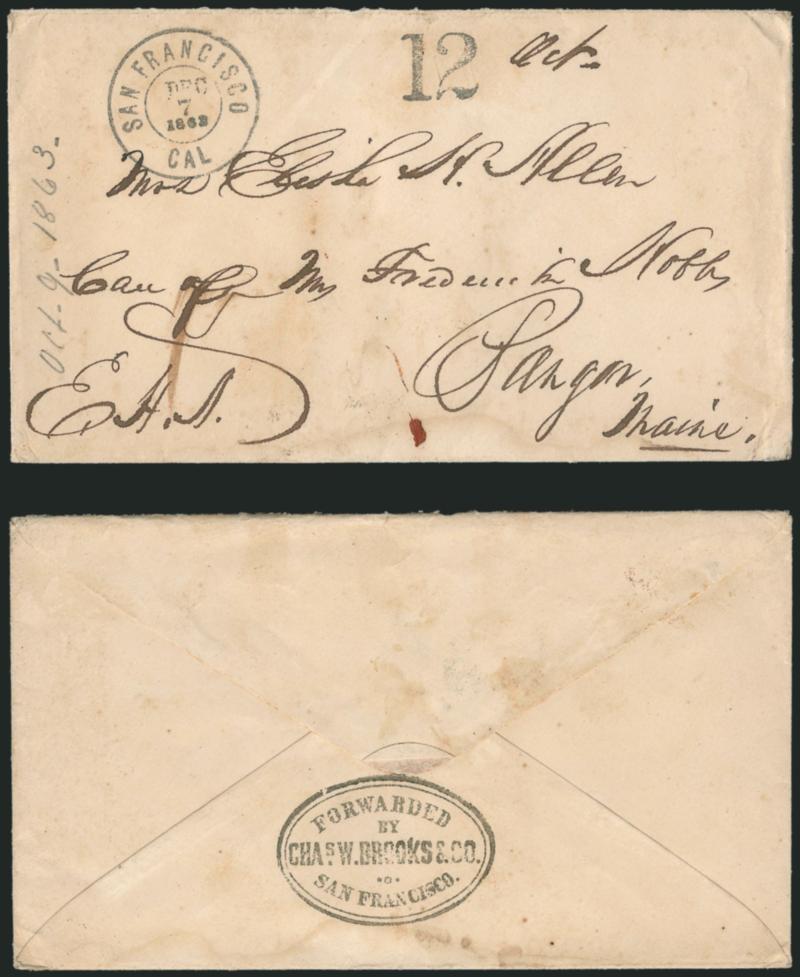 SAN FRANCISCO
DEC
7
1863
CAL
12
Oct-
Oct. 9 - 1863.
Mrs Elisha H. Allen
Care of Mrs Frederick Hobbs
Bangor,
Maine.
E H. A.
FORWARDED
BY
CHAS. W. BROOKS & CO.
SAN FRANCISCO.